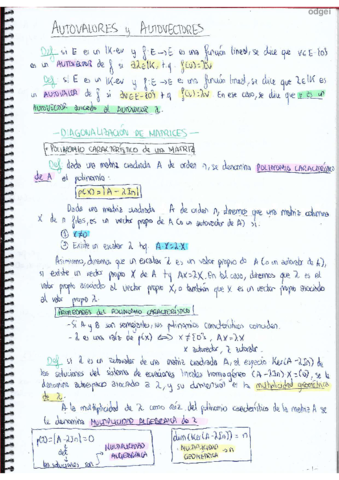 odgei
AUTOVALORES y AUTOVECTORES
Def si E es un IK-ev y f:E→E es una función lineal, se dice que v∈E-{0}
es un AUTOVECTOR de f si ∃λ∈IK, tq f(v)=λv
Def si E es un IK-ev y f:E→E es una función lineal, se dice que λ∈IK es
un AUTOVALOR de f si ∃v∈E-{0} tq f(v)=λv En ese caso, se dice que v es un
AUTOVECTOR asociado al AUTOVALOR λ.
-DIAGONALIZACIÓN DE MATRICES-
POLINOMIO CARACTERÍSTICO de una MATRIZ
Def dada una matriz cuadrada A de orden n, se denomina POLINOMIO CARACTERÍSTICO
de A el polinomio:
p(λ)=|A-λIn|
Dada una matriz cuadrada A de orden n, diremos que una matriz columna
X de n filas, es un vector propio de A (o un autovector de A) si:
① X≠0
② Existe un escalar λ tq AX=λX
Asimismo, diremos que un escalar λ es un valor propio de A (o un autovalor de A),
si existe un vector propio X de A tq AX=λX. En tal caso, diremos que λ es el
valor propio asociado al vector propio X, o también que X es un vector propio asociado
al valor propio λ.
PROPIEDADES del POLINOMIO CARACTERÍSTICO
-Si A y B son semejantes, sus polinomios característicos coinciden.
-λ es una raíz de p(λ) ⟺ X≠{0}, AX=λX
X autovector, λ autovalor.
Def Si λ es un autovalor de una matriz cuadrada A, el espacio Ker(A-λIn) de
las soluciones del sistema de ecuaciones lineales homogéneo (A-λIn)X=(0), se le
denomina autoespacio asociado a λ, y su dimensión es la multiplicidad geométrica
de λ.
A la multiplicidad de λ como raíz del polinomio característico de la matriz A se
le denomina MULTIPLICIDAD ALGEBRAICA de λ
p(λ)=|A-λIn|=0
MULTIPLICIDAD
ALGEBRAICA
las soluciones son
dim(Ker(A-λIn))=n
MULTIPLICIDAD
GEOMÉTRICA = n